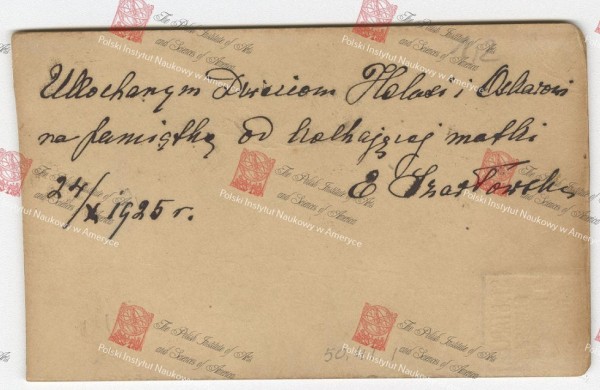 Ukochanym Dzieciom Helusi i Oskarowi
na pamiątkę od kochającej matki
E Szarłowska
24/X 1925 r.
The Polish Institute of Arts and Sciences of America
Polski Instytut Naukowy w Ameryce